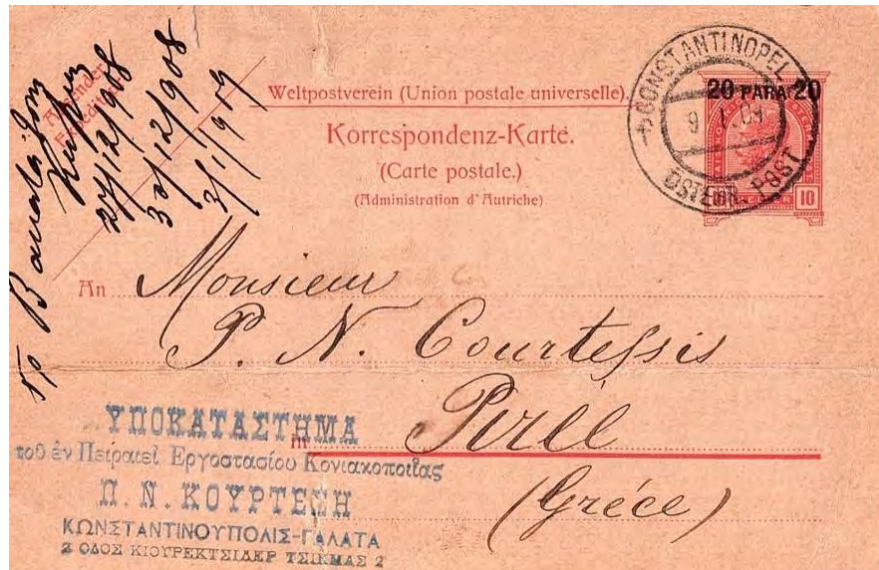 Weltpostverein (Union postale universelle).
Korrespondenz-Karte.
(Carte postale.)
(Administration d'Autriche)
CONSTANTINOPEL
9 09
ÖSTERR. POST
20 PARA 20
10 10
Absender
Expéditeur
27/12/908
30/12/908
3/1/909
An Monsieur
P. N. Courtessis
in Pirée
(Gréce)
ΥΠΟΚΑΤΑΣΤΗΜΑ
τοῦ ἐν Πειραιεῖ Εργοστασίου Κονιακοποιΐας
Π. Ν. ΚΟΥΡΤΕΣΗ
ΚΩΝΣΤΑΝΤΙΝΟΥΠΟΛΙΣ-ΓΑΛΑΤΑ
2 ΟΔΟΣ ΚΙΟΥΡΕΚΤΣΙΛΕΡ ΤΣΙΚΜΑΣ 2